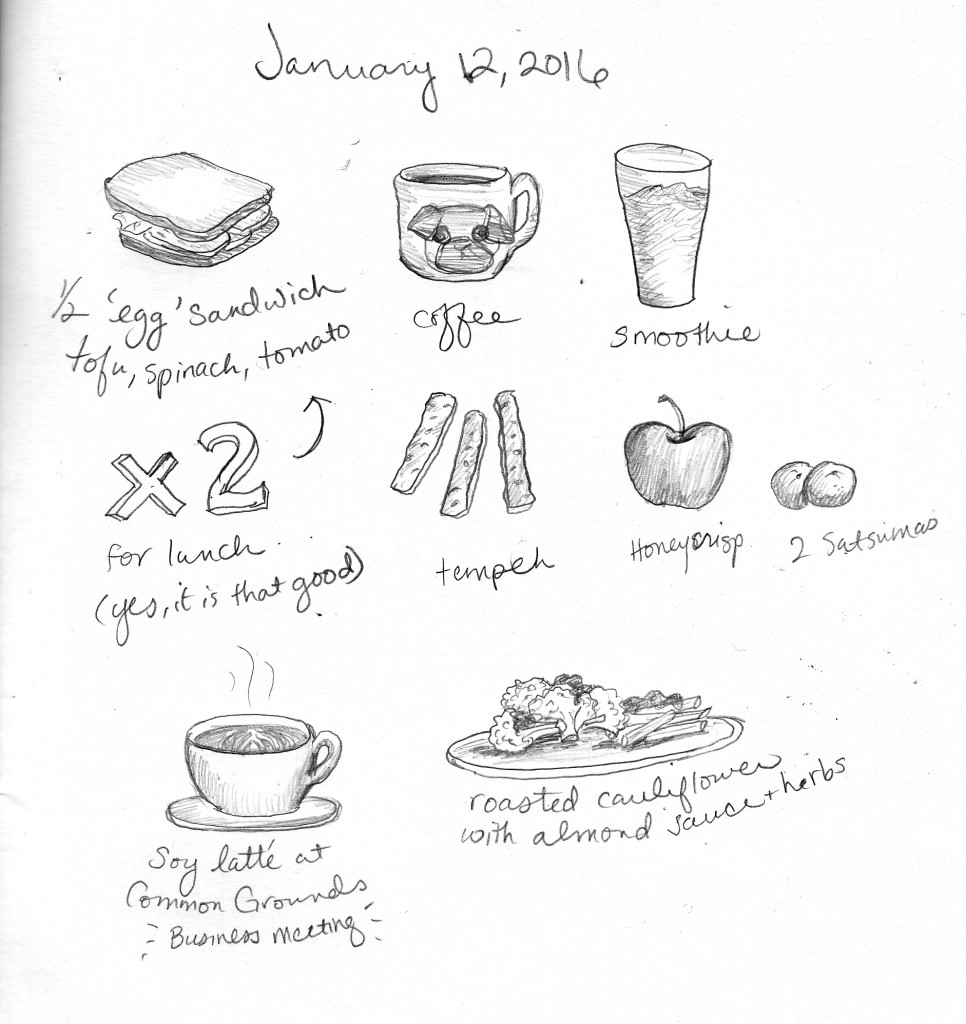 January 12, 2016
1/2 'egg' sandwich
tofu, spinach, tomato
coffee
smoothie
x2
for lunch
(yes, it is that good)
tempeh
Honeycrisp
2 Satsumas
Soy latté at
Common Grounds
Business Meeting
roasted cauliflower
with almond sauce + herbs